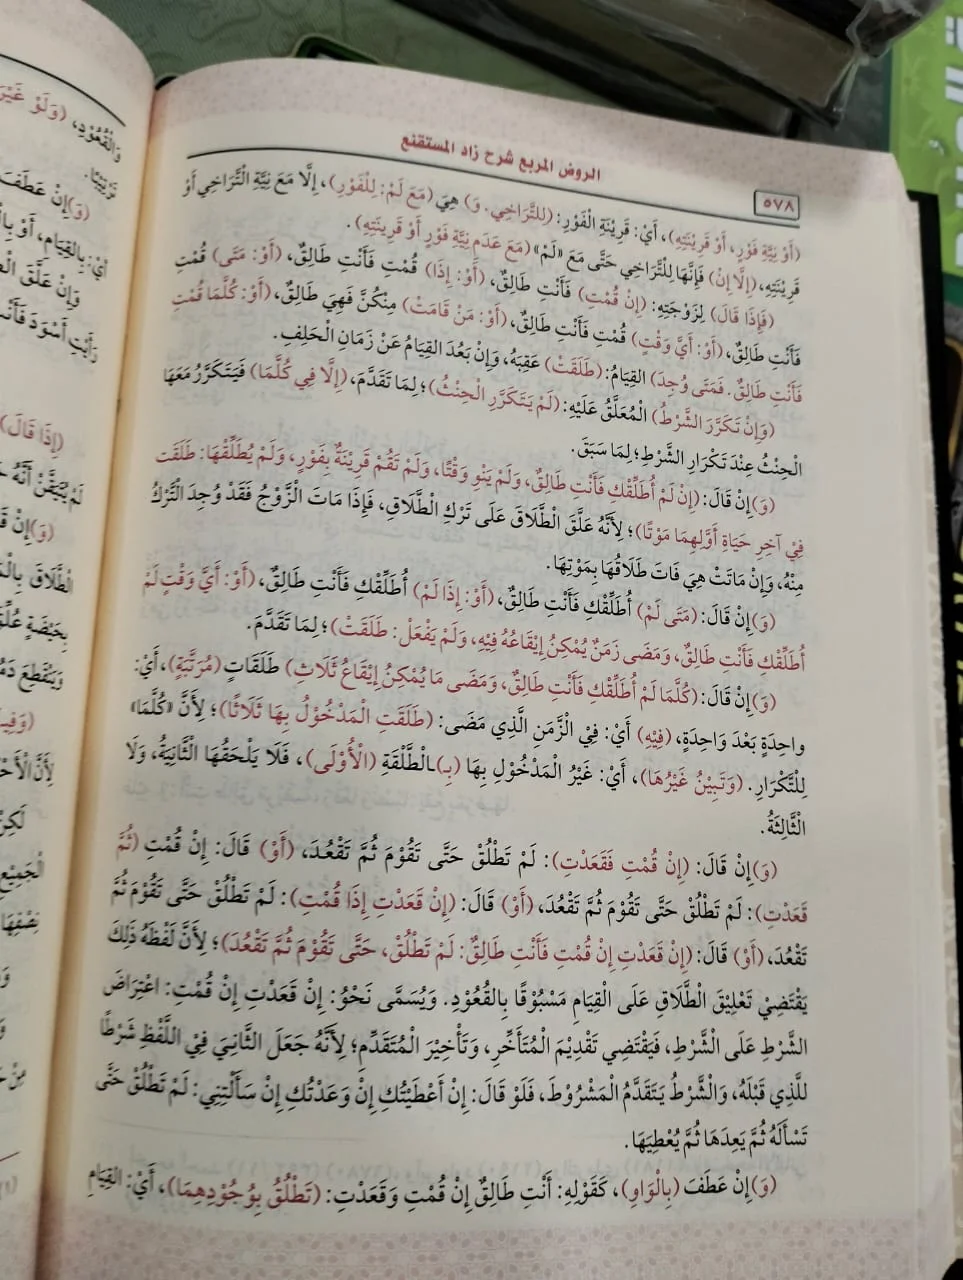 الروض المربع شرح زاد المستقنع
٥٧٨
(أَوْ نِيَّةِ فَوْرٍ، أَوْ قَرِينَتِهِ)، أَيْ: قَرِينَةِ الْفَوْرِ: (لِلتَّرَاخِي. وَ) هِيَ (مَعَ لَمْ: لِلْفَوْرِ)، إِلَّا مَعَ نِيَّةِ التَّرَاخِي أَوْ
قَرِينَتِهِ، (إِلَّا إِنْ) فَإِنَّهَا لِلتَّرَاخِي حَتَّى مَعَ «لَمْ» (مَعَ عَدَمِ نِيَّةِ فَوْرٍ أَوْ قَرِينَتِهِ).
(فَإِذَا قَالَ) لِزَوْجَتِهِ: (إِنْ قُمْتِ) فَأَنْتِ طَالِقٌ، (أَوْ: إِذَا) قُمْتِ فَأَنْتِ طَالِقٌ، (أَوْ: مَتَى) قُمْتِ
فَأَنْتِ طَالِقٌ، (أَوْ: أَيَّ وَقْتٍ) قُمْتِ فَأَنْتِ طَالِقٌ، (أَوْ: مَنْ قَامَتْ) مِنْكُنَّ فَهِيَ طَالِقٌ، (أَوْ: كُلَّمَا قُمْتِ
فَأَنْتِ طَالِقٌ. فَمَتَى وُجِدَ) الْقِيَامُ: (طَلَقَتْ) عَقِبَهُ، وَإِنْ بَعُدَ الْقِيَامُ عَنْ زَمَانِ الْحَلِفِ.
(وَإِنْ تَكَرَّرَ الشَّرْطُ) الْمُعَلَّقُ عَلَيْهِ: (لَمْ يَتَكَرَّرِ الْحِنْثُ)؛ لِمَا تَقَدَّمَ، (إِلَّا فِي كُلَّمَا) فَيَتَكَرَّرُ مَعَهَا
الْحِنْثُ عِنْدَ تَكْرَارِ الشَّرْطِ؛ لِمَا سَبَقَ.
(وَ)إِنْ قَالَ: (إِنْ لَمْ أُطَلِّقْكِ فَأَنْتِ طَالِقٌ، وَلَمْ يَنْوِ وَقْتًا، وَلَمْ تَقُمْ قَرِينَةٌ بِفَوْرٍ، وَلَمْ يُطَلِّقْهَا: طَلَقَت
فِي آخِرِ حَيَاةِ أَوَّلِهِمَا مَوْتًا)؛ لِأَنَّهُ عَلَّقَ الطَّلَاقَ عَلَى تَرْكِ الطَّلَاقِ، فَإِذَا مَاتَ الزَّوْجُ فَقَدْ وُجِدَ التَّرْكُ
مِنْهُ، وَإِنْ مَاتَتْ هِيَ فَاتَ طَلَاقُهَا بِمَوْتِهَا.
(وَ)إِنْ قَالَ: (مَتَى لَمْ) أُطَلِّقْكِ فَأَنْتِ طَالِقٌ، (أَوْ: إِذَا لَمْ) أُطَلِّقْكِ فَأَنْتِ طَالِقٌ، (أَوْ: أَيَّ وَقْتٍ لَمْ
أُطَلِّقْكِ فَأَنْتِ طَالِقٌ، وَمَضَى زَمَنٌ يُمْكِنُ إِيْقَاعُهُ فِيْهِ، وَلَمْ يَفْعَلْ: طَلَقَتْ)؛ لِمَا تَقَدَّمَ.
(وَ)إِنْ قَالَ: (كُلَّمَا لَمْ أُطَلِّقْكِ فَأَنْتِ طَالِقٌ، وَمَضَى مَا يُمْكِنُ إِيْقَاعُ ثَلَاثِ) طَلَقَاتٍ (مُرَتَّبَةٍ)، أَيْ:
واحِدَةٍ بَعْدَ وَاحِدَةٍ، (فِيْهِ) أَيْ: فِيْ الزَّمَنِ الَّذِي مَضَى: (طَلَقَتِ الْمَدْخُوْلُ بِهَا ثَلَاثًا)؛ لِأَنَّ «كُلَّمَا»
لِلتَّكْرَارِ. (وَتَبِيْنُ غَيْرُهَا)، أَيْ: غَيْرُ الْمَدْخُوْلِ بِهَا (بِـ)ـالطَّلْقَةِ (الْأُوْلَى)، فَلَا يَلْحَقُهَا الثَّانِيَةُ، وَلَا
الثَّالِثَةُ.
(وَ)إِنْ قَالَ: (إِنْ قُمْتِ فَقَعَدْتِ): لَمْ تَطْلُقْ حَتَّى تَقُوْمَ ثُمَّ تَقْعُدَ، (أَوْ) قَالَ: إِنْ قُمْتِ (ثُمَّ
قَعَدْتِ): لَمْ تَطْلُقْ حَتَّى تَقُوْمَ ثُمَّ تَقْعُدَ، (أَوْ) قَالَ: (إِنْ قَعَدْتِ إِذَا قُمْتِ): لَمْ تَطْلُقْ حَتَّى تَقُوْمَ ثُمَّ
تَقْعُدَ، (أَوْ) قَالَ: (إِنْ قَعَدْتِ إِنْ قُمْتِ فَأَنْتِ طَالِقٌ: لَمْ تَطْلُقْ، حَتَّى تَقُوْمَ ثُمَّ تَقْعُدَ)؛ لِأَنَّ لَفْظَهُ ذَلِكَ
يَقْتَضِيْ تَعْلِيْقَ الْطَّلَاقِ عَلَى الْقِيَامِ مَسْبُوْقًا بِالقُعُوْدِ. وَيُسَمَّى نَحْوُ: إِنْ قَعَدْتِ إِنْ قُمْتِ: اعْتِرَاضَ
الشَّرْطِ عَلَى الْشَّرْطِ، فَيَقْتَضِي تَقْدِيْمَ الْمُتَأَخِّرِ، وَتَأْخِيْرَ الْمُتَقَدِّمِ؛ لِأَنَّهُ جَعَلَ الثَّانِيَ فِيْ اللَّفْظِ شَرْطًا
للَّذِي قَبْلَهُ، وَالشَّرْطُ يَتَقَدَّمُ الْمَشْرُوْطَ، فَلَوْ قَالَ: إِنْ أَعْطَيْتُكِ إِنْ وَعَدْتُكِ إِنْ سَأَلْتِنِي: لَمْ تَطْلُقْ حَتَّى
تَسْأَلَهُ ثُمَّ يَعِدَهَا ثُمَّ يُعْطِيَهَا.
(وَ)إِنْ عَطَفَ (بِالْوَاوِ)، كَقَوْلِهِ: أَنْتِ طَالِقٌ إِنْ قُمْتِ وَقَعَدْتِ: (تَطْلُقُ بِوُجُوْدِهِمَا)، أَيْ: القِيَامِ
وَالْقُعُوْدِ، (وَلَوْ غَيْرَ
(وَ)إِنْ عَطَفَ
أَيْ: بِالْقِيَامِ، أَوْ
وَإِنْ عَلَّقَ
رَأَيْتِ أَسْوَدَ فَأَنْتِ
(إِذَا قَالَ)
لَمْ يُتَيَقَّنْ أَنَّهُ
(وَ)إِنْ
الْطَّلَاقَ
بِحَيْضَةٍ
وَيَنْقَطِعَ
لَكِنْ
الْجَمِيْعِ
نِصْفِهَا